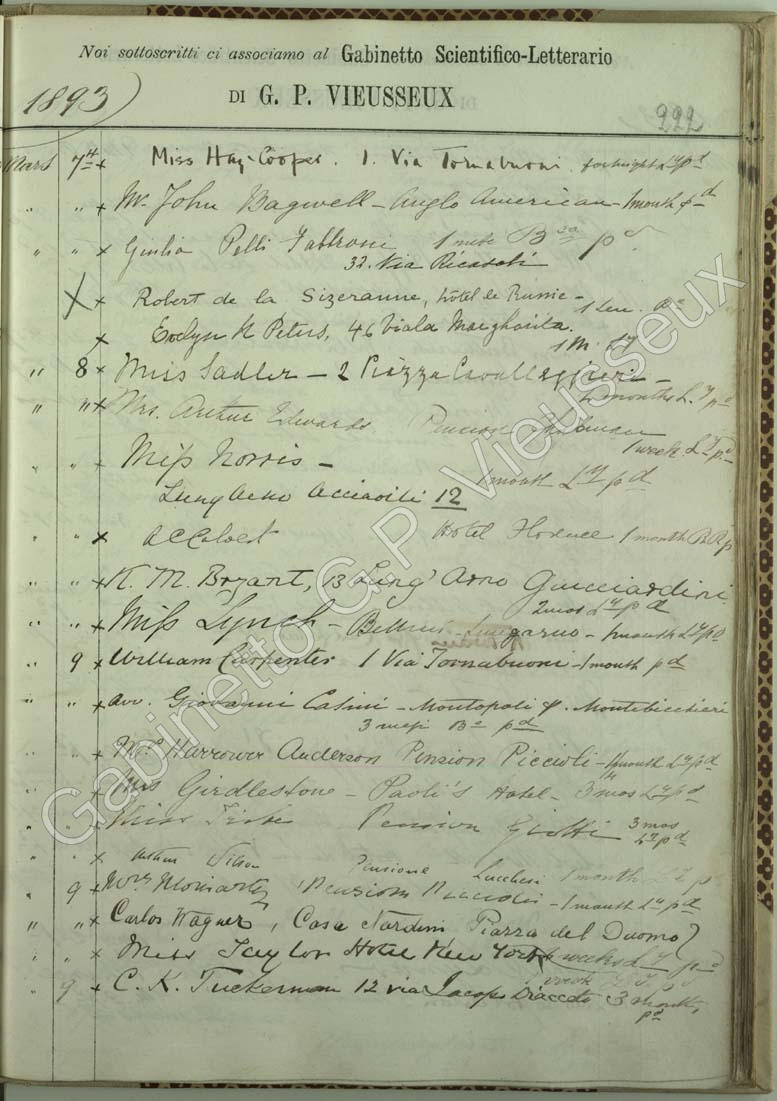 Noi sottoscritti ci associamo al Gabinetto Scientifico-Letterario
DI G. P. VIEUSSEUX
1893
222
Mars 7 Miss Hay-Cooper. 1. Via Tornabuoni fortnight pd
" " Mr. John Bagwell - Anglo American - 1 month pd
" " Giulia Pelli Fabbroni 1 mese pd
32. Via Ricasoli
Robert de la Sizeranne, hôtel de Russie -
Evelyn N Peters, 46 Viale Margherita.
1 M.
" 8 Miss Sadler - 2 Piazza Cavalleggieri -
2 months pd
" " Mrs. Arthur Edwards Pension
1 week pd
" " Miss Norris -
1 month pd
Lung Arno Acciaioli 12
" Hotel Florence 1 month
" " K. M. Bryant, 13 Lung' Arno Guicciardini
2 mos pd
" " Miss Lynch - Bellini - Lungarno - 1 month pd
" 9 William Carpenter 1 Via Tornabuoni - 1 month pd
" " Avv. Giovanni Casini - Montopoli p. Montebicchieri
3 mesi pd
" " Harrower Anderson Pension Piccioli - 1 month pd
" " Mrs Girdlestone - Paoli's Hotel - 3 mos pd
" " Miss Pension Giotti 3 mos
pd
Arthur Wilson Pensione Lucchesi 1 month
" 9 Mrs Moriarty Pension Piccioli - 1 month pd
" " Carlos Wagner, Casa Nardini Piazza del Duomo 7
" " Miss Taylor Hotel New York weeks pd
" 9 C. K. Tuckerman 12 via Jacopo Diacceto 3 months,
pd
Gabinetto G.P. Vieusseux